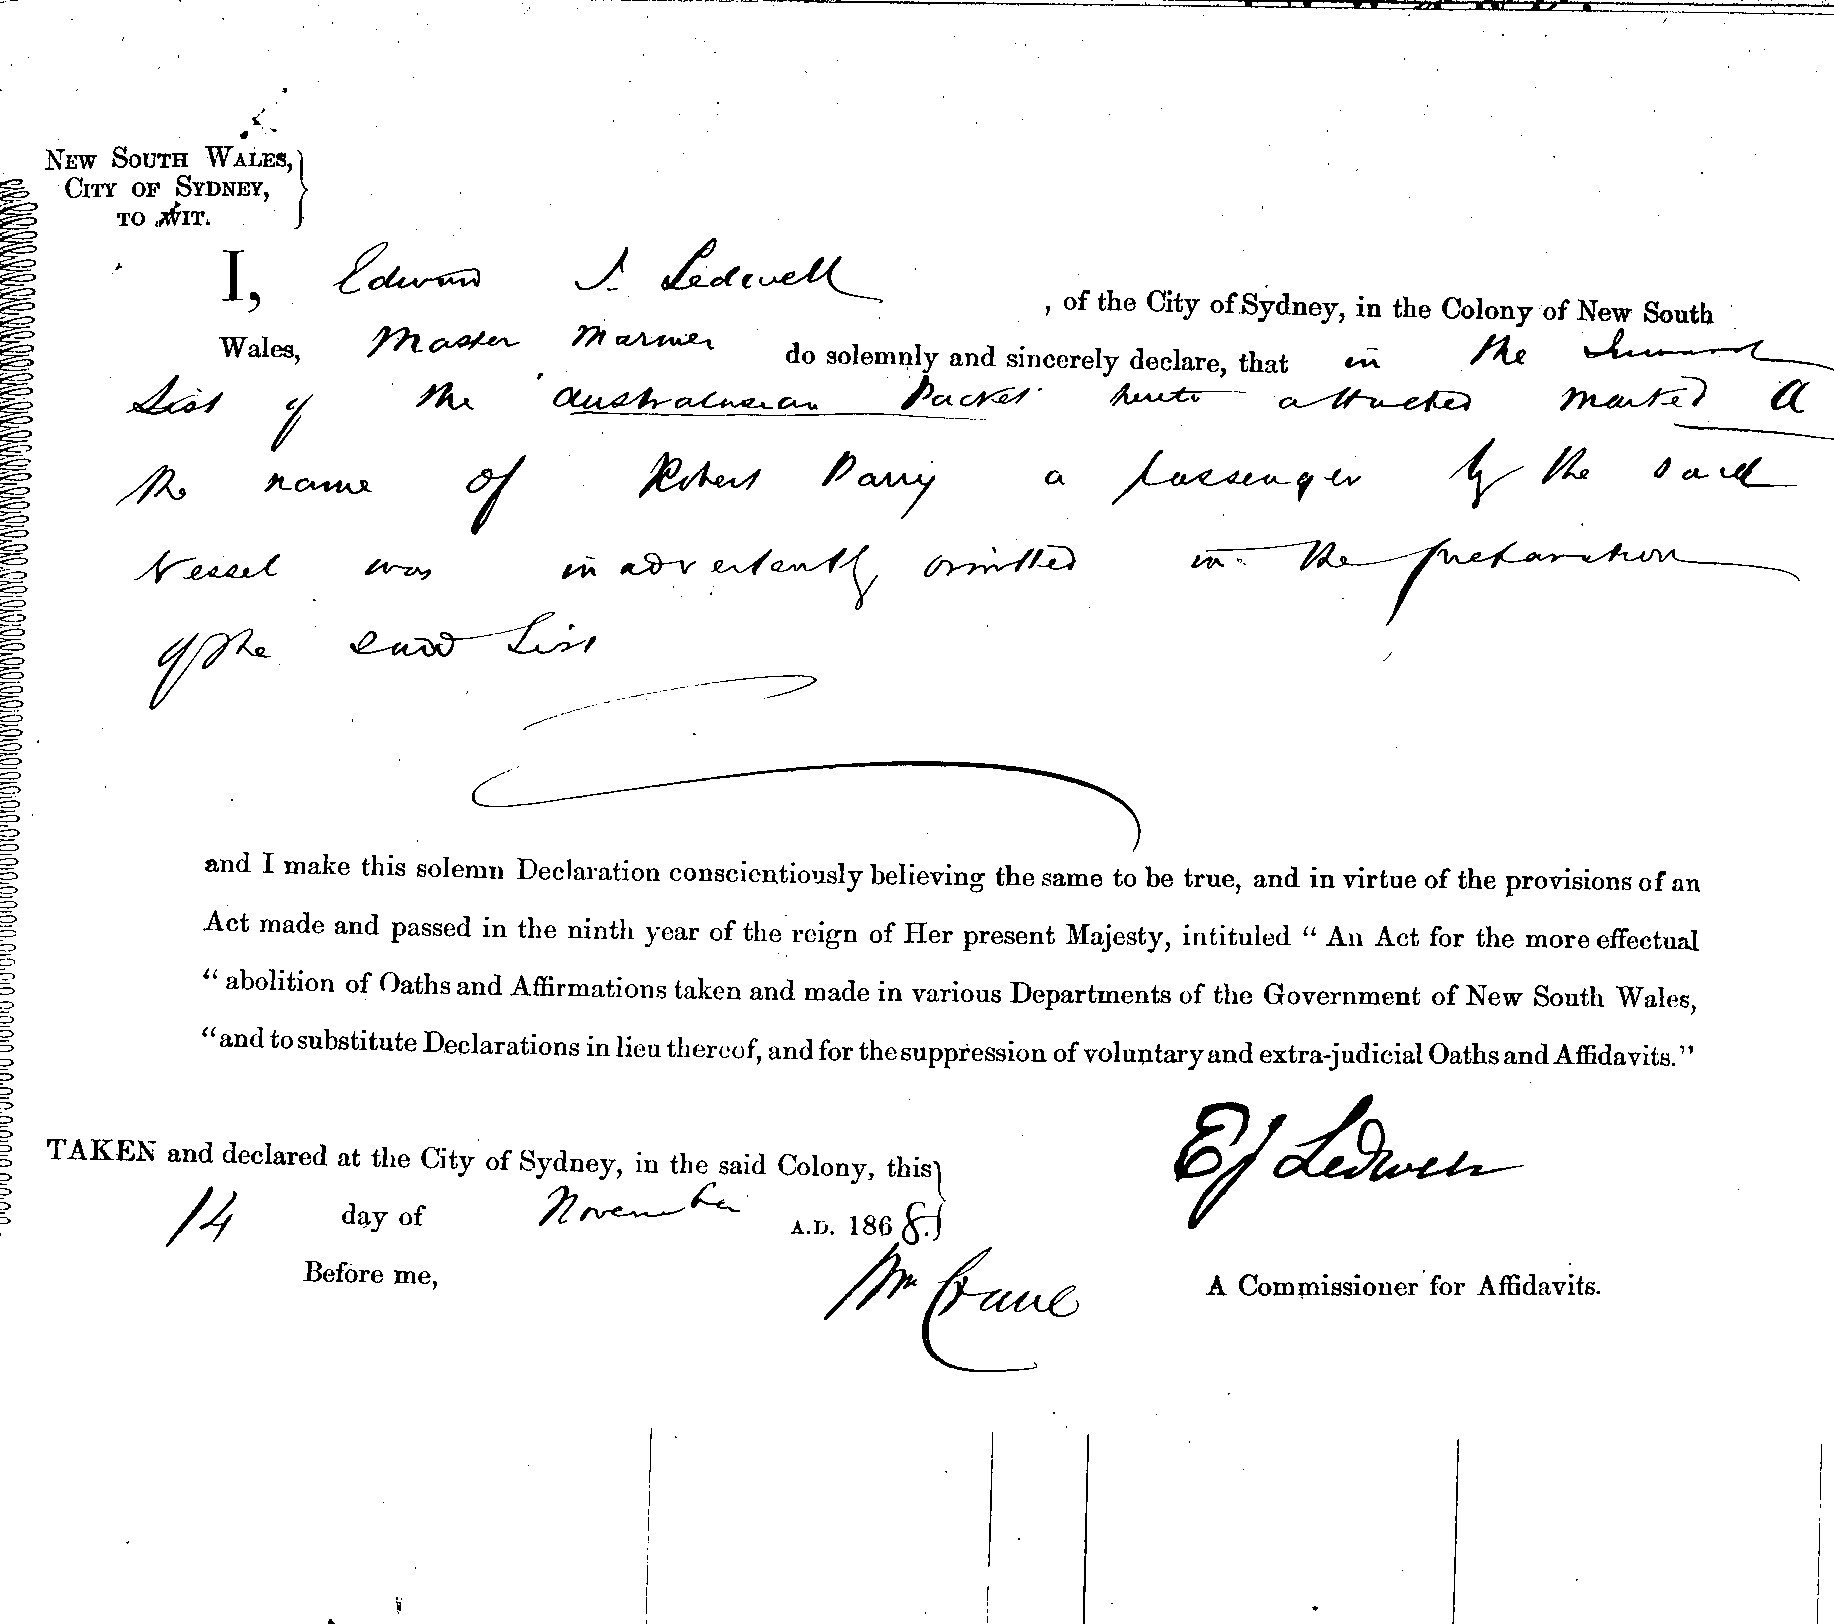 NEW SOUTH WALES,
CITY OF SYDNEY,
TO WIT.
I, Edward J. Ledwell, of the City of Sydney, in the Colony of New South
Wales, Master Mariner do solemnly and sincerely declare, that in the Inward
List of the Australasian Packet hereto attached marked A
the name of Robert Parry a passenger by the said
Vessel was inadvertently omitted in the preparation
of the said List
and I make this solemn Declaration conscientiously believing the same to be true, and in virtue of the provisions of an
Act made and passed in the ninth year of the reign of Her present Majesty, intituled “ An Act for the more effectual
“ abolition of Oaths and Affirmations taken and made in various Departments of the Government of New South Wales,
“and to substitute Declarations in lieu thereof, and for the suppression of voluntary and extra-judicial Oaths and Affidavits.”
EJ Ledwell
TAKEN and declared at the City of Sydney, in the said Colony, this
14 day of November A.D. 1868.
Before me, Wm Crane A Commissioner for Affidavits.